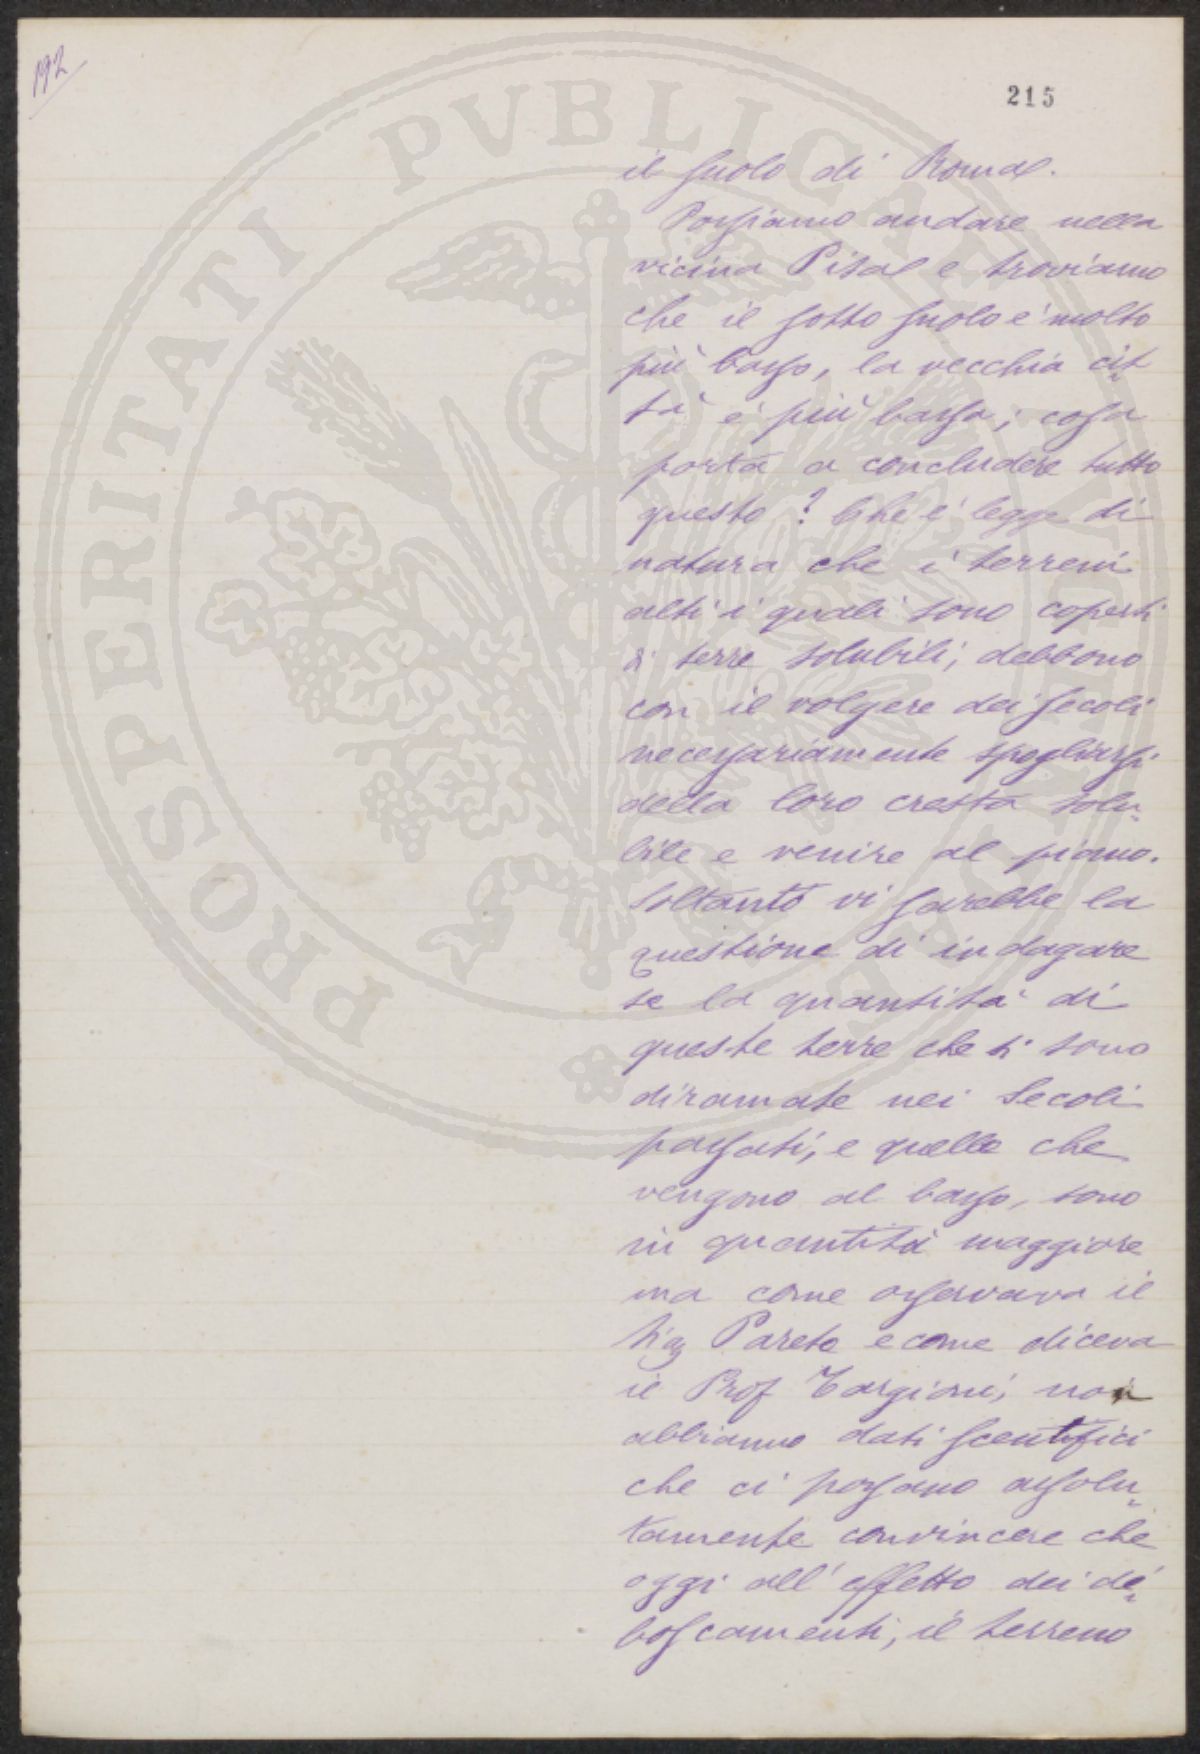 192
215
PROSPERITATI PVBLICAE AVGENDAE
il suolo di Roma.
Possiamo andare nella
vicina Pisa e troviamo
che il sotto suolo e' molto
più basso, la vecchia cit
tà è più bassa; cosa
porta a concludere tutto
questo? Che è legge di
natura che i terreni
alti i quali sono coperti
di terre solubili, debbono
con il volgere dei secoli
necessariamente spogliarsi
della loro cresta solu„
bile e venire al piano.
Soltanto vi sarebbe la
questione di indagare
se la quantità di
queste terre che si sono
diramate nei Secoli
passati, e quelle che
vengono al basso, sono
in quantità maggiore
ma come osservava il
Sig Pareto e come diceva
il Prof Targioni, non
abbiamo dati scentifici
che ci possano assolu„
tamente convincere che
oggi all'effetto dei di„
boscamenti, il terreno